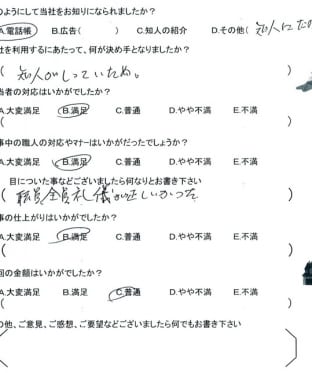 のようにして当社をお知りになられましたか？
A.電話帳　B.広告（　　　）C.知人の紹介　D.その他（ 知人に
社を利用するにあたって、何が決め手となりましたか？
（ 知人がしっていたため。 ）
当者の対応はいかがでしたか？
A.大変満足　B.満足　C.普通　D.やや不満　E.不満
（ ）
事中の職人の対応やマナーはいかがだったでしょうか？
A.大変満足　B.満足　C.普通　D.やや不満　E.不満
目についた事などございましたら何なりとお書き下さい
（ 職員全員礼儀が正しかった ）
事の仕上がりはいかがでしたか？
A.大変満足　B.満足　C.普通　D.やや不満　E.不満
（ ）
回の金額はいかがでしたか？
A.大変満足　B.満足　C.普通　D.やや不満　E.不満
（ ）
の他、ご意見、ご感想、ご要望などございましたら何でもお書き下さい